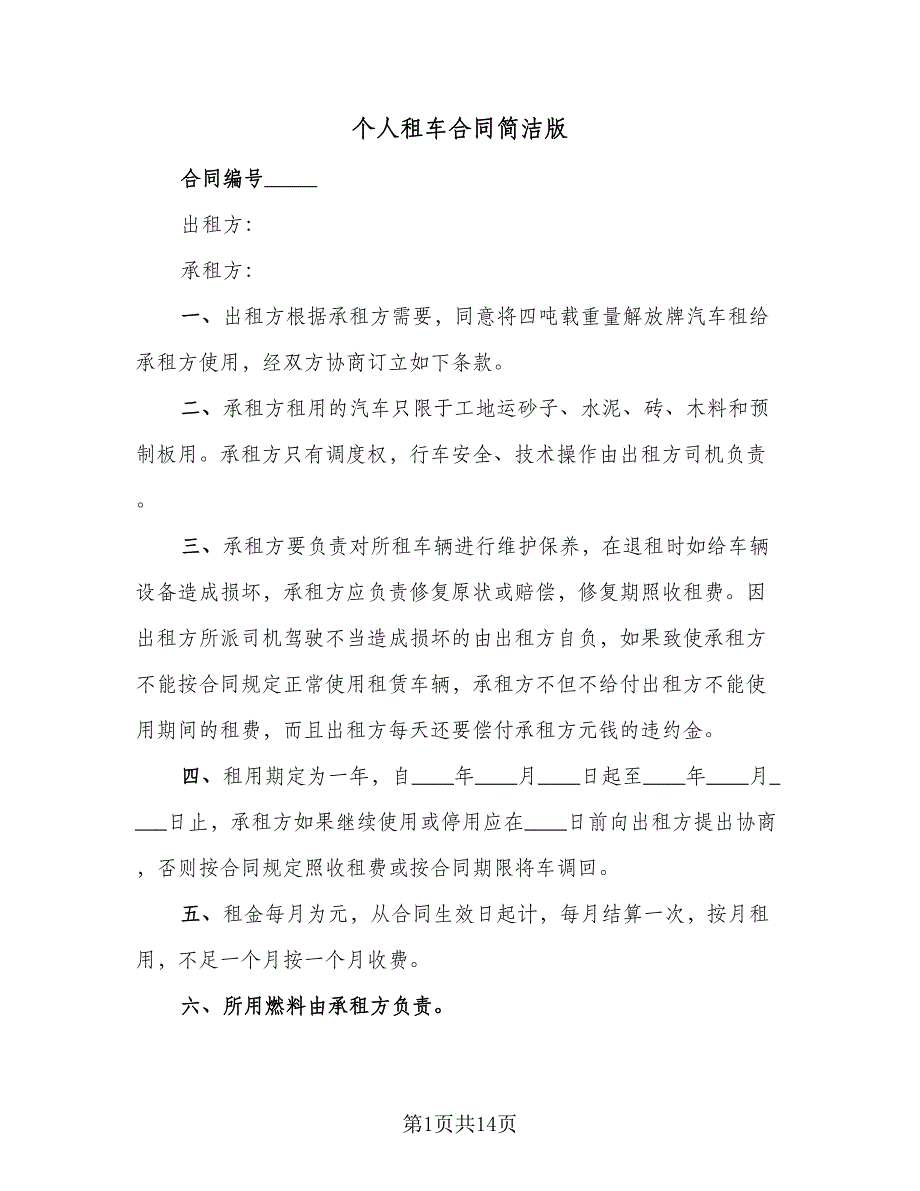 个人租车合同简洁版
合同编号_____
出租方：
承租方：
一、出租方根据承租方需要，同意将四吨载重量解放牌汽车租给
承租方使用，经双方协商订立如下条款。
二、承租方租用的汽车只限于工地运砂子、水泥、砖、木料和预
制板用。承租方只有调度权，行车安全、技术操作由出租方司机负责
。
三、承租方要负责对所租车辆进行维护保养，在退租时如给车辆
设备造成损坏，承租方应负责修复原状或赔偿，修复期照收租费。因
出租方所派司机驾驶不当造成损坏的由出租方自负，如果致使承租方
不能按合同规定正常使用租赁车辆，承租方不但不给付出租方不能使
用期间的租费，而且出租方每天还要偿付承租方元钱的违约金。
四、租用期定为一年，自____年____月____日起至____年____月_
___日止，承租方如果继续使用或停用应在____日前向出租方提出协商
，否则按合同规定照收租费或按合同期限将车调回。
五、租金每月为元，从合同生效日起计，每月结算一次，按月租
用，不足一个月按一个月收费。
六、所用燃料由承租方负责。
第1页共14页